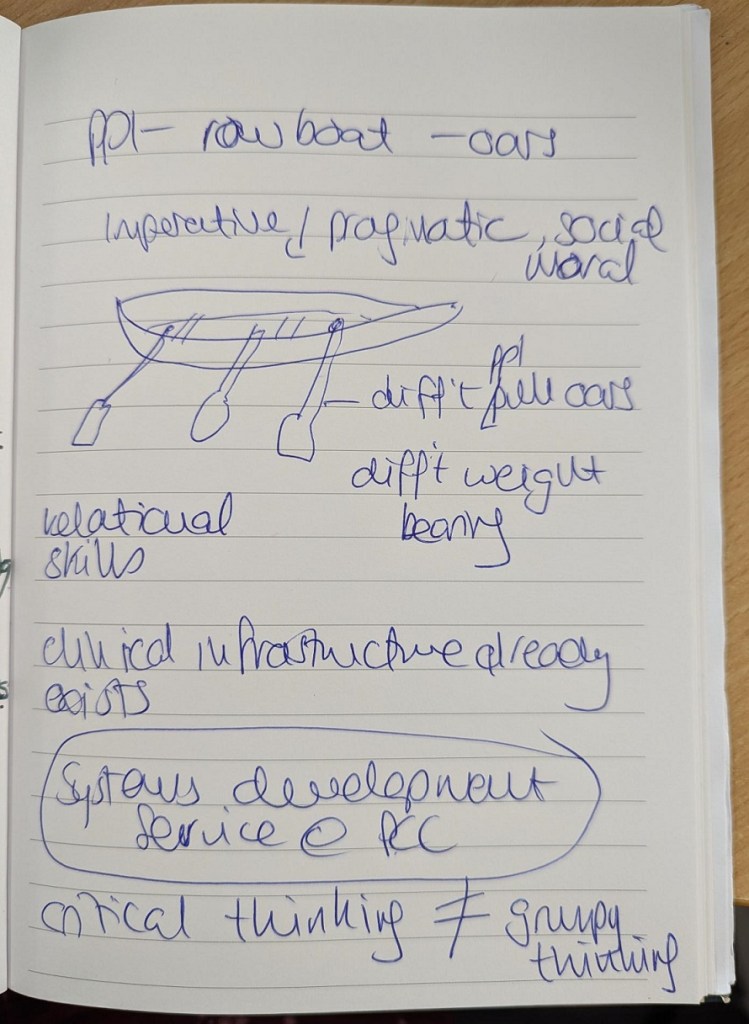 ppl — row boat — oars
imperative / pragmatic, social
moral
ppl
diff't pull oars
diff't weight
bearing
relational
skills
clinical infrastructure already
exists
systems development
service @ PCC
critical thinking ≠ grumpy
thinking